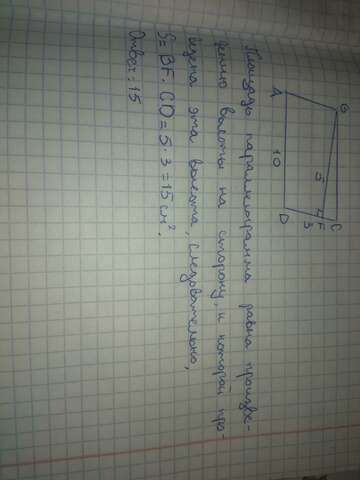 A
B
10
5
D
3
F
C
Площадь параллелограмма равна произве-
дению высоты на сторону, к которой про-
ведена эта высота, следовательно,
S = BF · CD = 5 · 3 = 15 см².
Ответ: 15